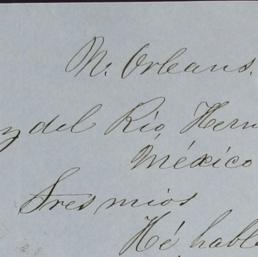 N. Orleans.
y del Rio, Hern
México
Sres mios
Hé habl